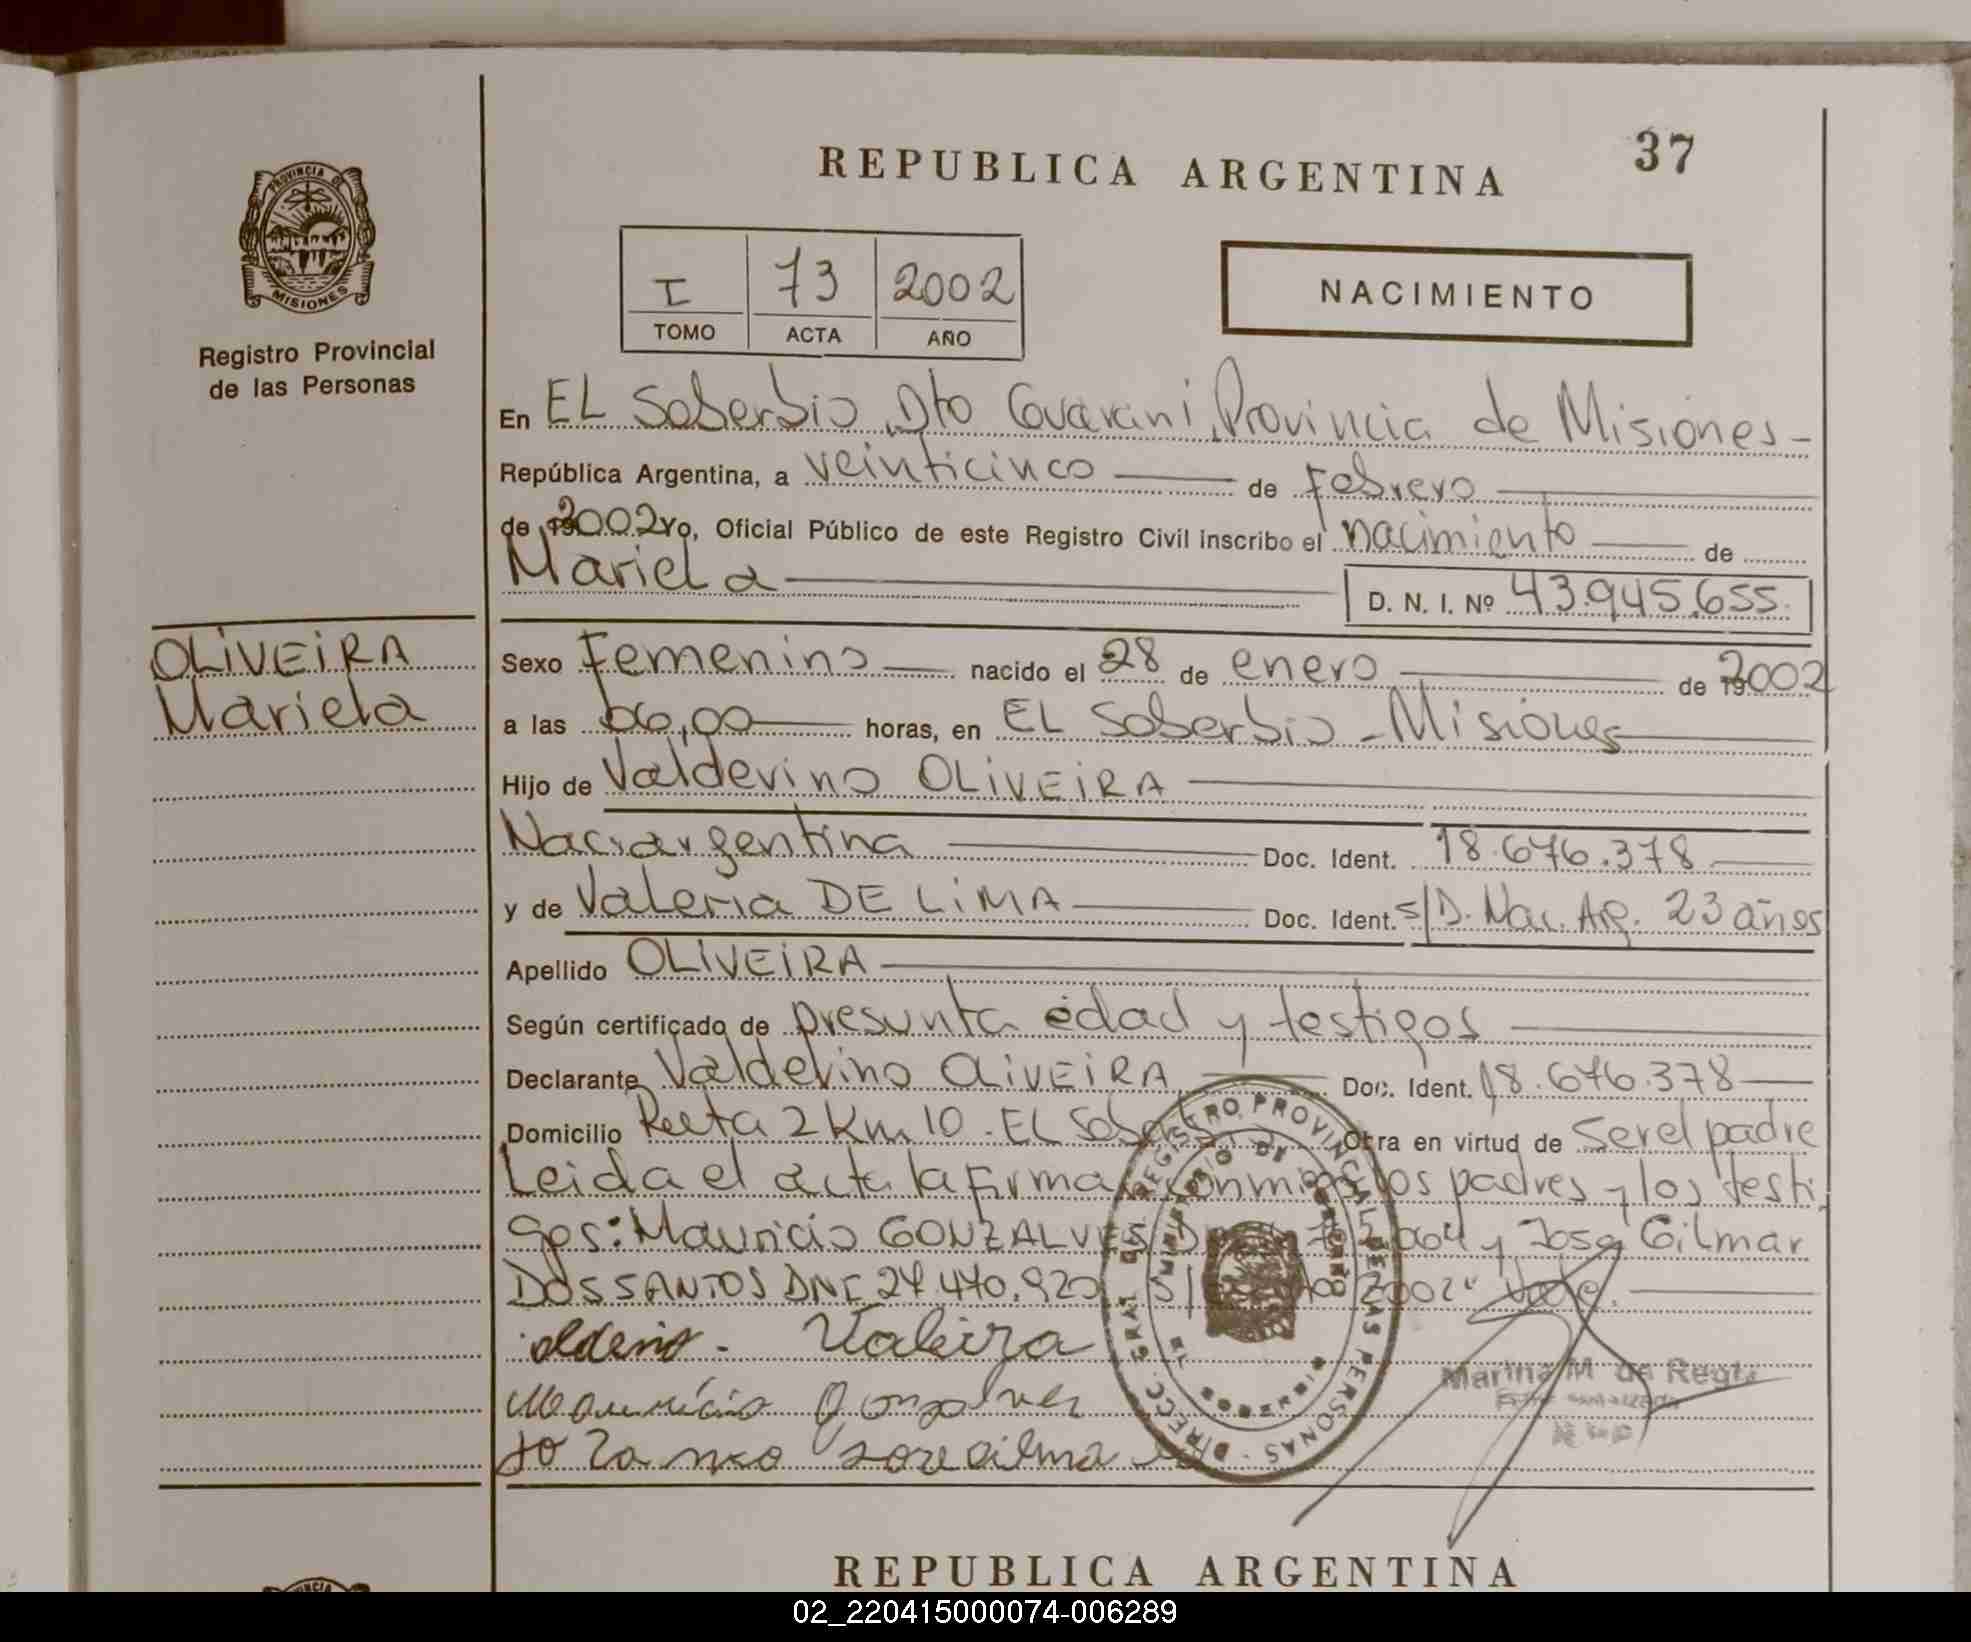 37
REPUBLICA ARGENTINA
PROVINCIA DE
MISIONES
Registro Provincial
de las Personas
I 73 2002
TOMO ACTA AÑO
NACIMIENTO
En EL Soberbio, Dto Guarani, Provincia de Misiones-
República Argentina, a veinticinco de Febrero
de 2002 Yo, Oficial Público de este Registro Civil inscribo el nacimiento de
Mariela D. N. I. Nº 43.945.655.
OLIVEIRA
Mariela
Sexo Femenino nacido el 28 de enero de 2002
a las 06,00 horas, en EL Soberbio - Misiones
Hijo de Valdevino OLIVEIRA
Nac. argentina Doc. Ident. 18.676.378
y de Valeria DE LIMA Doc. Ident. S/D. Nac. Arg. 23 años
Apellido OLIVEIRA
Según certificado de presunta edad y testigos
Declarante Valdevino OLIVEIRA Doc. Ident. 18.676.378
Domicilio Recta 2 Km 10 - EL Soberbio Obra en virtud de Ser el padre
Leida el acta la Firman conmigo los padres y los testi
gos: Mauricio GONZALVES y Jose Gilmar
DOS SANTOS DNI 27.470.920 2002" Vale.
Valeira
Mauricio Gonzalves
REGISTRO PROVINCIAL DE LAS PERSONAS - DIRECC. GRAL DEL
MINISTERIO DE GOBIERNO
MISIONES
Marina M de Regis
REPUBLICA ARGENTINA
02_220415000074-006289